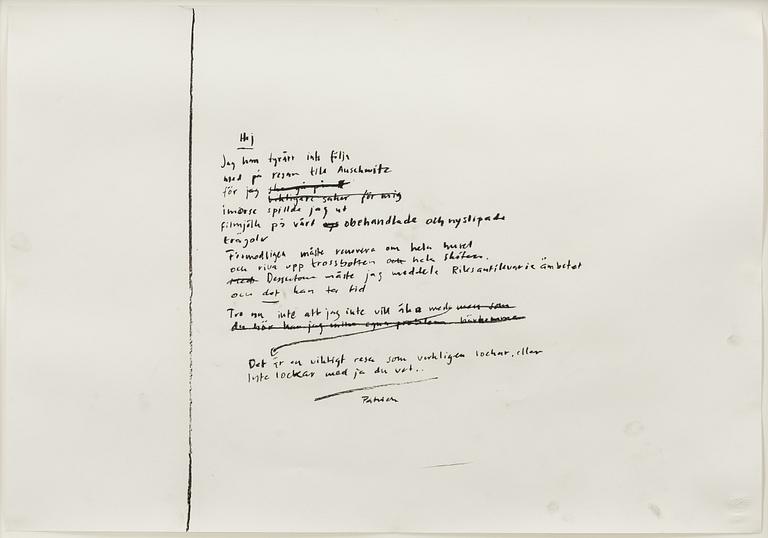 Hej
Jag kan tyvärr inte följa
med på resan till Auschwitz
för jag
viktigare saker för mig
imorse spillde jag ut
filmjölk på vårt obehandlade och nyslipade
trägolv
Förmodligen måste renovera om hela huset
och riva upp trossbotten och hela skiten.
Dessutom måste jag meddela Riksantikvarie ämbetet
och det kan ta tid
Tro nu inte att jag inte vill åka med men som
du hör har jag mina egna problem härhemma
Det är en viktigt resa som verkligen lockar, eller
inte lockar med ja du vet..